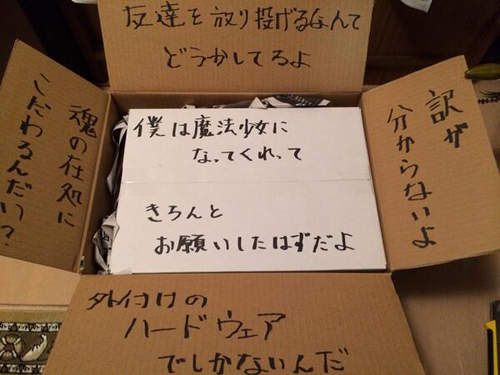 友達を放り投げるなんて
どうかしてるよ
訳が
分からないよ
魂の在処に
こだわるんだい?
僕は魔法少女に
なってくれって
きちんと
お願いしたはずだよ
外付けの
ハードウェア
でしかないんだ